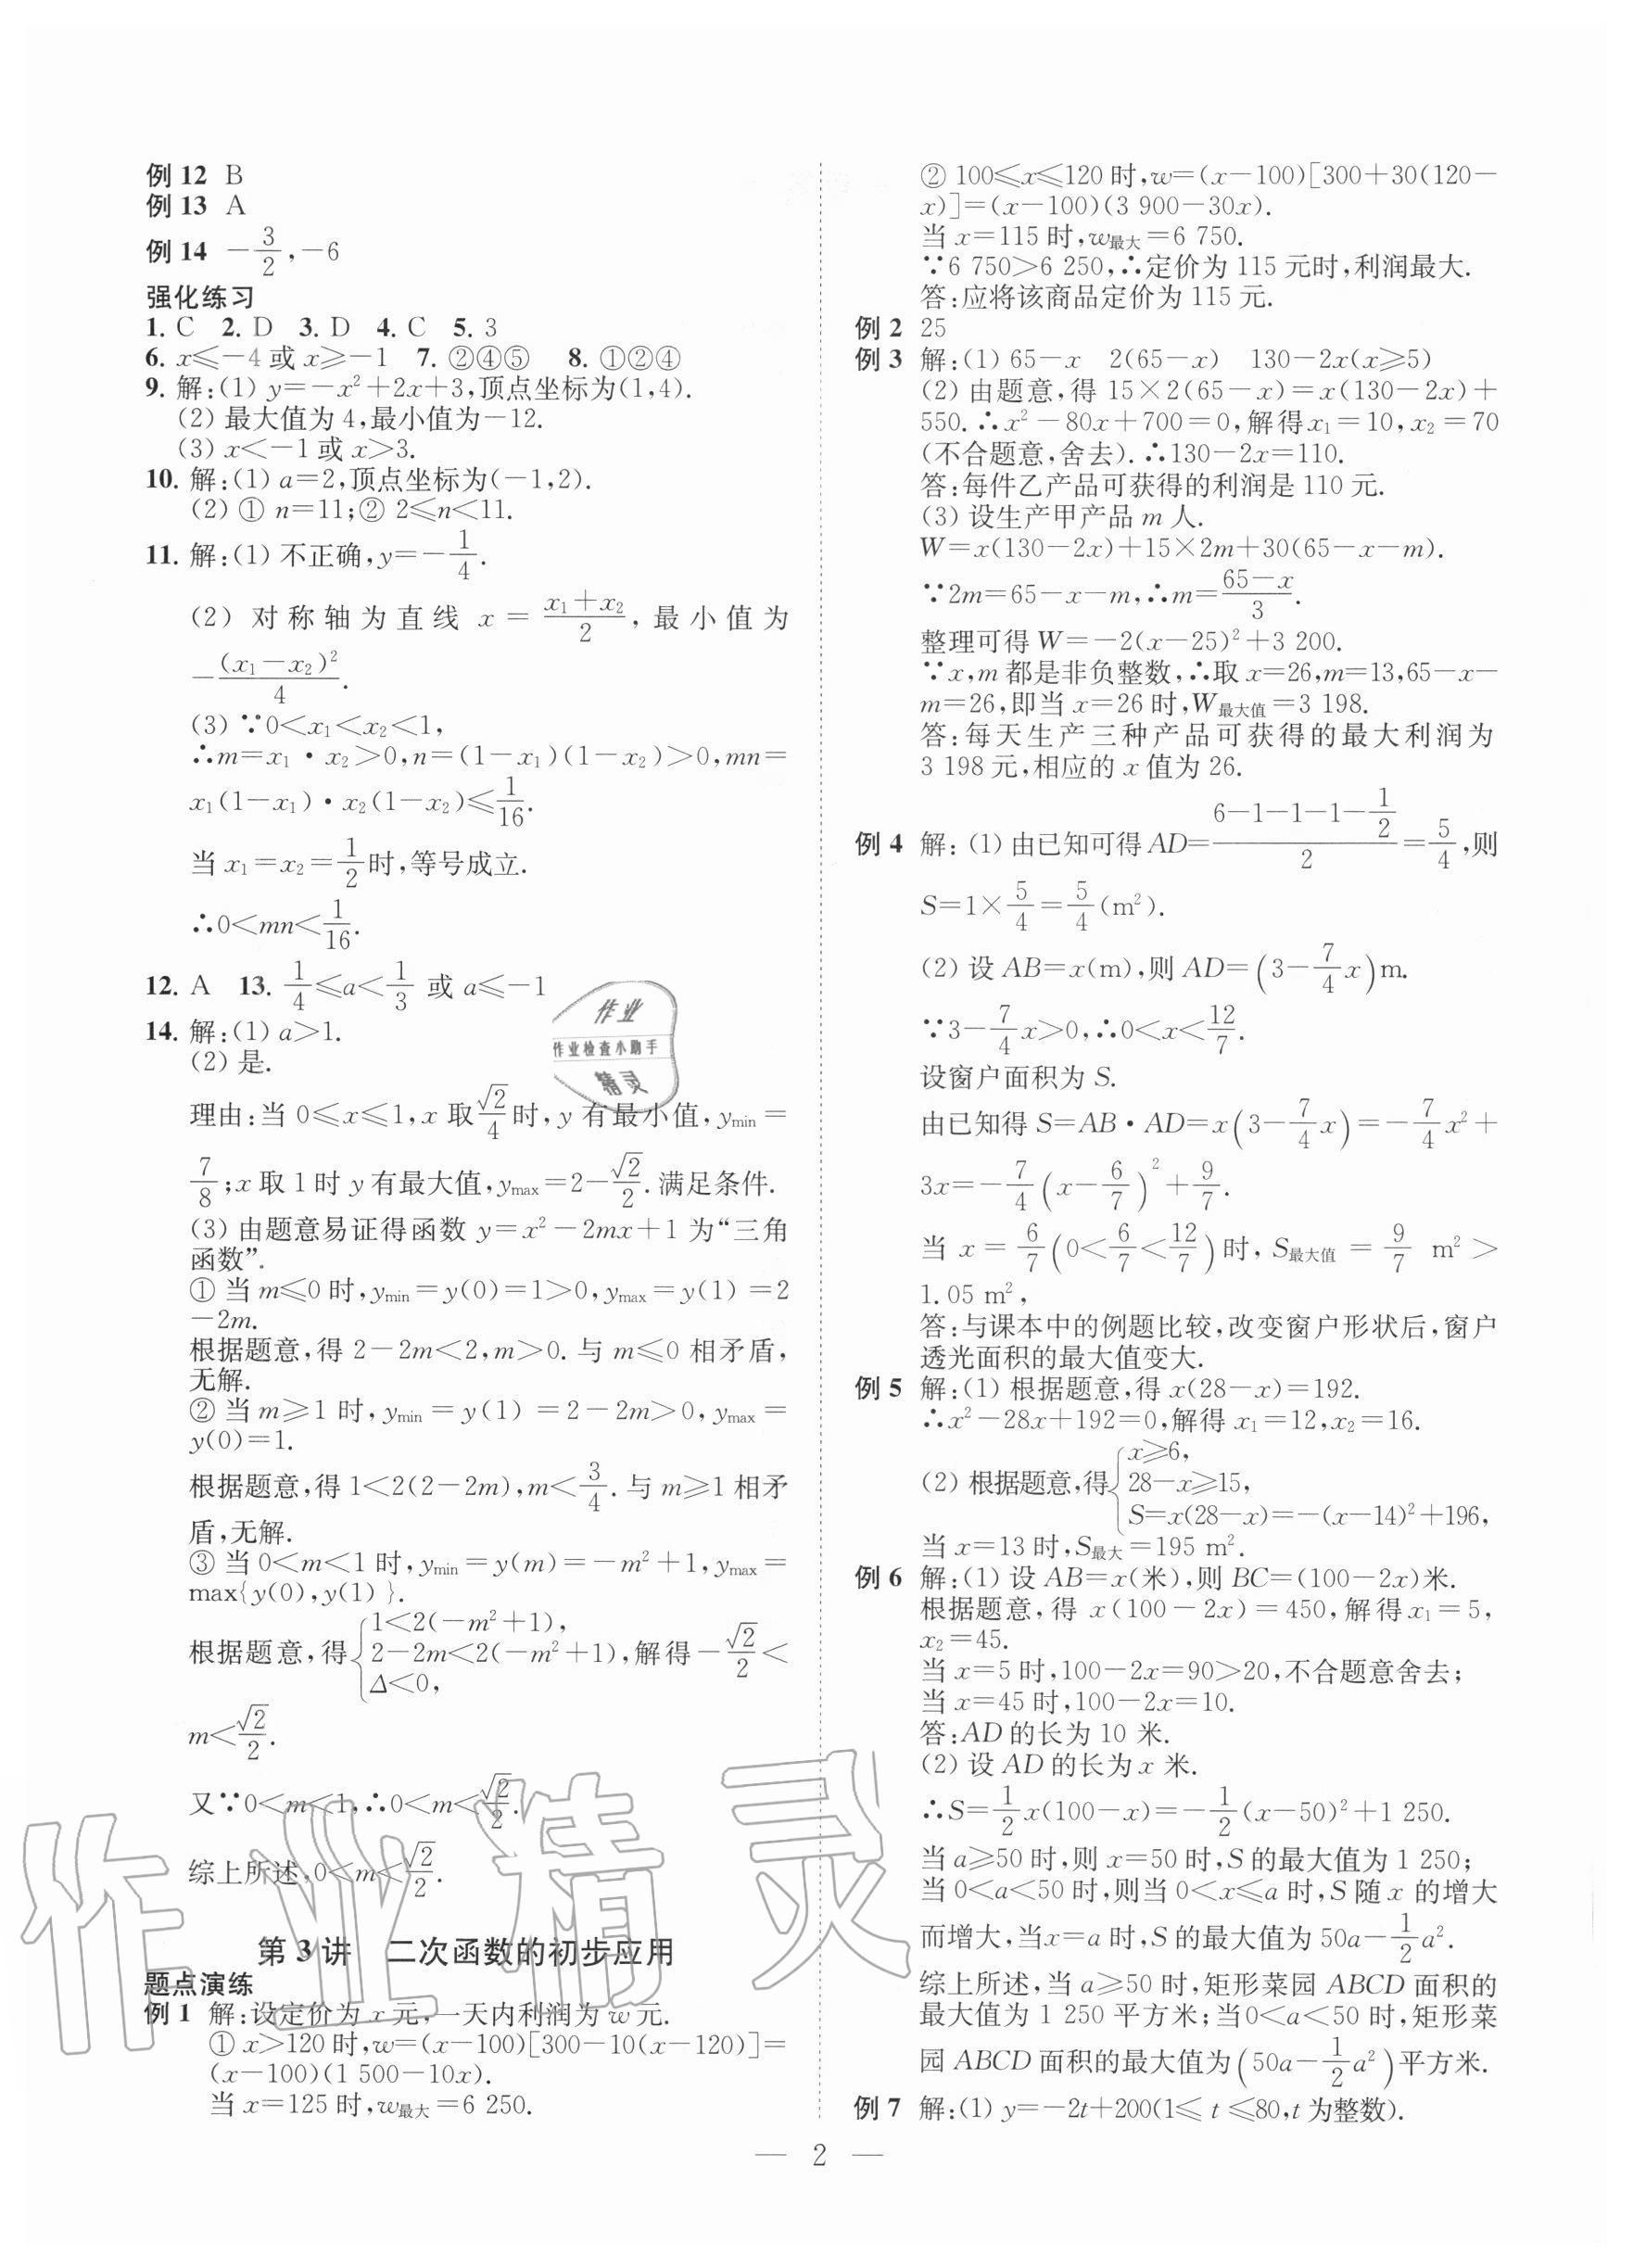 例 12 B
例 13 A
例 14 −3/2,−6
强化练习
1. C 2. D 3. D 4. C 5. 3
6. x≤−4 或 x≥−1 7. ②④⑤ 8. ①②④
9. 解:(1) y=−x²+2x+3,顶点坐标为(1,4).
(2) 最大值为 4,最小值为−12.
(3) x<−1 或 x>3.
10. 解:(1) a=2,顶点坐标为(−1,2).
(2) ① n=11;② 2≤n<11.
11. 解:(1) 不正确,y=−1/4.
(2) 对称轴为直线 x=(x₁+x₂)/2,最小值为
−(x₁−x₂)²/4.
(3) ∵0<x₁<x₂<1,
∴m=x₁·x₂>0,n=(1−x₁)(1−x₂)>0,mn=
x₁(1−x₁)·x₂(1−x₂)≤1/16.
当 x₁=x₂=1/2时,等号成立.
∴0<mn<1/16.
12. A 13. 1/4≤a<1/3 或 a≤−1
14. 解:(1) a>1.
(2) 是.
理由:当 0≤x≤1,x 取√2/4时,y 有最小值,ymin=
7/8;x 取 1 时 y 有最大值,ymax=2−√2/2.满足条件.
(3) 由题意易证得函数 y=x²−2mx+1 为“三角
函数”.
① 当 m≤0 时,ymin=y(0)=1>0,ymax=y(1)=2
−2m.
根据题意,得 2−2m<2,m>0. 与 m≤0 相矛盾,
无解.
② 当 m≥1 时,ymin=y(1)=2−2m>0,ymax=
y(0)=1.
根据题意,得 1<2(2−2m),m<3/4.与 m≥1 相矛
盾,无解.
③ 当 0<m<1 时,ymin=y(m)=−m²+1,ymax=
max{y(0),y(1)}.
根据题意,得{1<2(−m²+1),
2−2m<2(−m²+1),解得−√2/2<
Δ<0,
m<√2/2.
又∵0<m<1,∴0<m<√2/2.
综上所述,0<m<√2/2.
第 3 讲 二次函数的初步应用
题点演练
例 1 解:设定价为 x 元,一天内利润为 w 元.
① x>120 时,w=(x−100)[300−10(x−120)]=
(x−100)(1 500−10x).
当 x=125 时,w最大=6 250.
② 100≤x≤120 时,w=(x−100)[300+30(120−
x)]=(x−100)(3 900−30x).
当 x=115 时,w最大=6 750.
∵6 750>6 250,∴定价为 115 元时,利润最大.
答:应将该商品定价为 115 元.
例 2 25
例 3 解:(1) 65−x 2(65−x) 130−2x(x≥5)
(2) 由题意,得 15×2(65−x)=x(130−2x)+
550.∴x²−80x+700=0,解得x₁=10,x₂=70
(不合题意,舍去).∴130−2x=110.
答:每件乙产品可获得的利润是 110 元.
(3) 设生产甲产品 m 人.
W=x(130−2x)+15×2m+30(65−x−m).
∵2m=65−x−m,∴m=(65−x)/3.
整理可得 W=−2(x−25)²+3 200.
∵x,m 都是非负整数,∴取 x=26,m=13,65−x−
m=26,即当 x=26 时,W最大值=3 198.
答:每天生产三种产品可获得的最大利润为
3 198 元,相应的 x 值为 26.
例 4 解:(1) 由已知可得 AD=(6−1−1−1−1/2)/2=5/4,则
S=1×5/4=5/4(m²).
(2) 设 AB=x(m),则 AD=(3−7/4x)m.
∵3−7/4x>0,∴0<x<12/7.
设窗户面积为 S.
由已知得 S=AB·AD=x(3−7/4x)=−7/4x²+
3x=−7/4(x−6/7)²+9/7.
当 x=6/7(0<6/7<12/7)时,S最大值=9/7 m²>
1.05 m²,
答:与课本中的例题比较,改变窗户形状后,窗户
透光面积的最大值变大.
例 5 解:(1) 根据题意,得 x(28−x)=192.
∴x²−28x+192=0,解得 x₁=12,x₂=16.
(2) 根据题意,得{x≥6,
28−x≥15,
S=x(28−x)=−(x−14)²+196,
当 x=13 时,S最大=195 m².
例 6 解:(1) 设 AB=x(米),则 BC=(100−2x)米.
根据题意,得 x(100−2x)=450,解得x₁=5,
x₂=45.
当 x=5 时,100−2x=90>20,不合题意舍去;
当 x=45 时,100−2x=10.
答:AD 的长为 10 米.
(2) 设 AD 的长为 x 米.
∴S=1/2x(100−x)=−1/2(x−50)²+1 250.
当 a≥50 时,则 x=50 时,S 的最大值为 1 250;
当 0<a<50 时,则当 0<x≤a 时,S 随 x 的增大
而增大,当x=a 时,S 的最大值为 50a−1/2a².
综上所述,当 a≥50 时,矩形菜园 ABCD 面积的
最大值为 1 250 平方米;当0<a<50 时,矩形菜
园 ABCD 面积的最大值为(50a−1/2a²)平方米.
例 7 解:(1) y=−2t+200(1≤t≤80,t 为整数).
— 2 —
作业
作业检查小助手
精灵
作业精灵